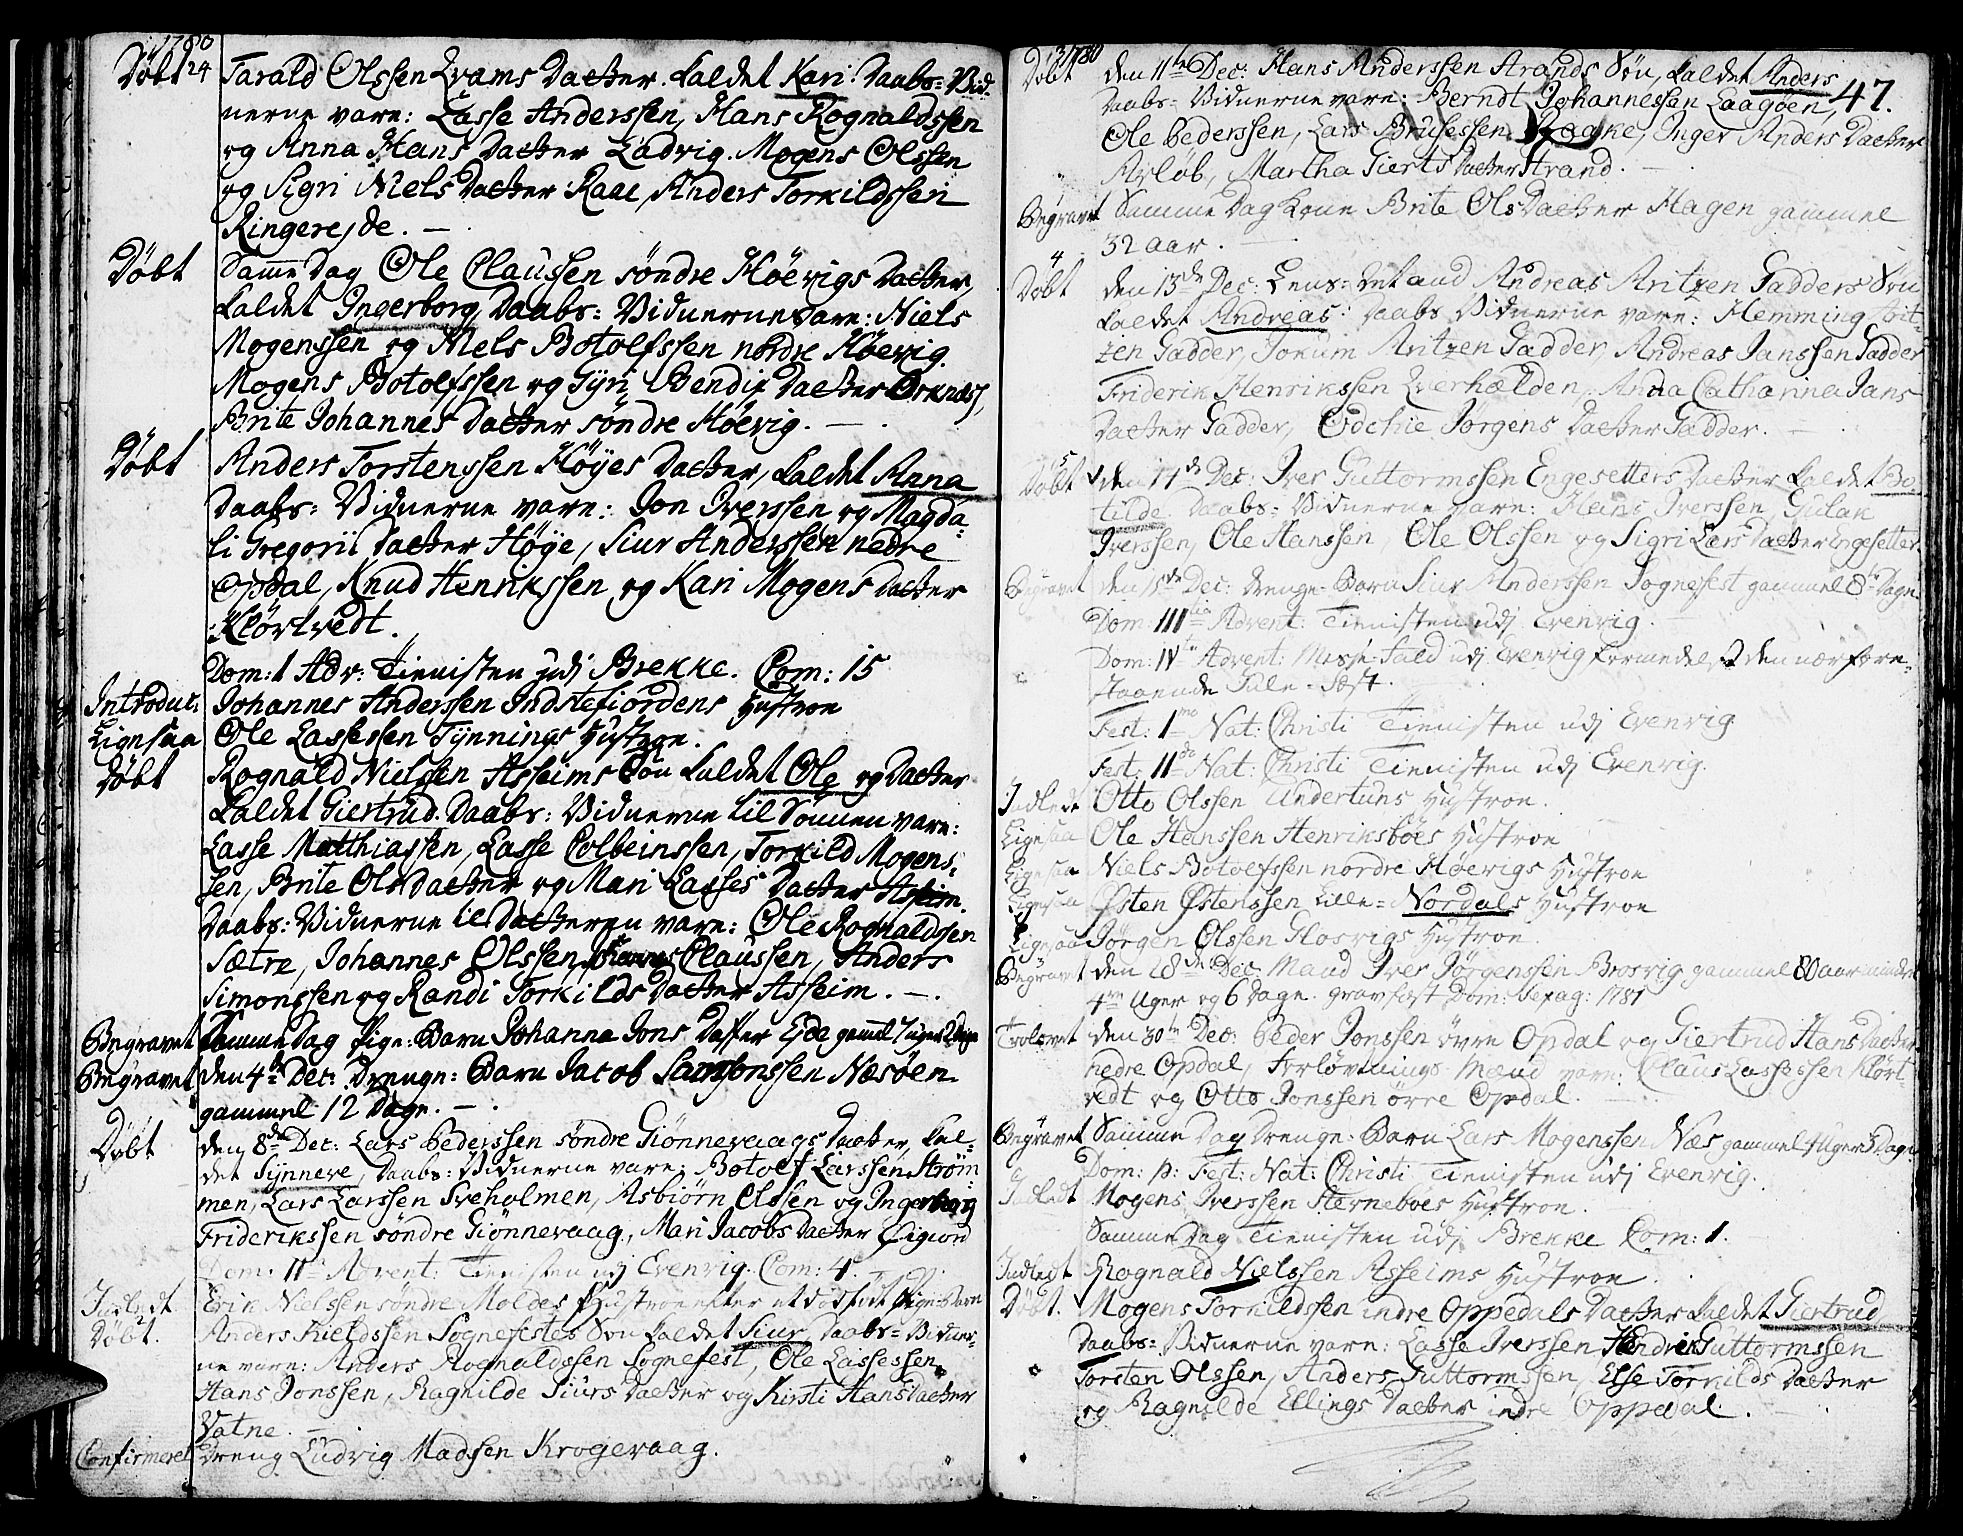 1780
Døbt 24 Tarald Olssen Qvams Datter kaldet Kari. Daabs-Vid-
nerne vare: Lasse Anderssen, Hans Rognaldssen
og Anna Hans Datter Ladvig. Mogens Olssen
og Sigri Niels Datter Raae, Anders Torkildssen
Ringereyde.
Døbt Samme Dag Ole Claussen söndre Höevigs Datter,
kaldet Ingerborg, Daabs-Vidnerne vare: Niels
Mogenssen og Niels Botolfssen nordre Höevig.
Mogens Botolfssen og Gÿri Bendix Datter
Brite Johannes Datter söndre Höevig.
Døbt Anders Torstenssen Höÿes Datter, kaldet Anna
Daabs-Vidnerne vare: Jon Iverssen og Magda-
li Gregorii Datter Höÿe, Siur Anderssen nedre
Opdal, Knud Henrikssen og Kari Mogens Datter
Klörtvedt.
Dom: 1 Adv: Tienisten udj Brekke. Com: 15
Introduc: Johannes Anderssen Indrefiordens Hustroe
Ligesaa Ole Lassessen Tÿnnings Hustroe.
Døbt Rognald Nielssen Asseims Sön kaldet Ole og Datter
kaldet Giertrud. Daabs-Vidnerne til Sönnen vare:
Lasse Matthiassen, Lasse Colbeinssen, Torkild Mogens-
sen, Brite Ols Datter og Mari Lasses Datter Asseim.
Daabs-Vidnerne til Datteren vare: Ole Rognaldssen
Sætre, Johannes Olssen, Claussen, Anders
Simonssen og Randi Torkilds Datter Asseim.
Begravet Samme Dag Pige-Barn Johanna Jons Datter Eide gaml 7 uger 2 Dage
Begravet den 4de Dec: Drenge-Barn Jacob Samsonssen Næsöen
gammel 12 Dage.
Døbt den 8de Dec: Lars Pederssen söndre Giönnevaags Datter, kal-
det Synneve, Daabs-Vidnerne vare: Botolf Larssen Ström-
men, Lars Larssen Sveholmen, Asbiörn Olssen og Ingerborg
Friderikssen söndre Giönnevaag, Mari Jacobs Datter
Dom: IIda Advent: Tienisten udj Evenvig. Com: 4.
Indledt Erik Nielssen söndre Moldes Hustroe efter et dödfödt Pige-Barn
Døbt. Anders Kieldssen Sognefestes Sön kaldet Siur Daabs-Vidner-
ne vare: Anders Rognaldssen Sognefest, Ole Lassessen,
Hans Jonssen, Ragnilde Siurs Datter og Kirsti Hans Datter
Vatne.
Confirmeret Dreng Ludvig Madssen Krogevaag.
1780
47.
Døbt den 11te Dec: Hans Anderssen Strands Sön, kaldet Anders
Daabs-Vidnerne vare: Berndt Johannessen Laagöen,
Ole Pederssen, Lars Brusessen, Inger Anders Datter
Martha Gierts Datter Strand.
Begravet Samme Dag Kone Brite Ols Datter Hagen gammel
32 aar.
4
Døbt den 13de Dec: Andreas Aritzen Gadders Sön
kaldet Andreas. Daabs Vidnerne vare: Hemming Arit-
zen Gadder, Jokum Aritzen Gadder, Andreas Janssen Gadder
Friderik Henrikssen Anna Catharina Jans
Datter Gadder, Jörgens Datter Gadder.
5
Døbt den 17de Dec: Iver Guttormssen Engesetters Datter kaldet Bo-
tilde. Daabs-Vidnerne vare: Hans Iverssen, Gulak
Iverssen, Ole Hanssen, Ole Olssen og Sigri Lars Datter Engesetter.
Begravet den 15de Dec: Drenge-Barn Siur Anderssen Sognefest gammel 8te Dage.
Dom: IIItia Advent: Tienisten udj Evenvig.
Dom: IVta Advent: Messe-Fald udj Evenvig formedelst den nærfore-
staaende Jule-Fæst.
Fest: 1ma Nat: Christi Tienisten udj Evenvig
Fest: IIda Nat: Christi Tienisten udj Evenvig.
Indledt Otto Olssen Undertuns Hustroe.
Ligesaa Ole Hanssen Henriksböes Hustroe
Ligesaa Niels Botolfssen nordre Höevigs Hustroe
Ligesaa Østen Østenssen Lille-Nordals Hustroe
Ligesaa Jörgen Olssen Glosvigs Hustroe.
Begravet den 28de Dec: Mand Iver Jörgenssen Brosvig gammel 80 aar mindre
4re Uger og 6 Dage. gravfæst Dom: Sexag: 1781
Trolovet den 30te Dec: Peder Jonssen övre Opdal og Giertrud Hans Datter
nedre Opdal, Forlövnings-Mænd vare: Claus Lassessen Klört-
vedt og Otto Jonssen övre Opdal.
Begravet Samme Dag Drenge-Barn Lars Mogenssen Næs gammel 4 Uger 3 Dage.
Dom: p: Fest: Nat: Christi Tienisten udj Evenvig.
Indledt Mogens Iverssen Sterneboes Hustroe.
Samme Dag Tienisten udj Brekke Com: 1.
Indledt Rognald Nielssen Asseims Hustroe.
Døbt. Mogens Torkildssen indre Oppedals Datter kaldet Giertrud
Daabs-Vidnerne vare: Lasse Iverssen, Hendrik Guttormssen
Torsten Olssen, Anders Guttormssen, Else Torkilds Datter
og Ragnilde Ellings Datter indre Oppedal.